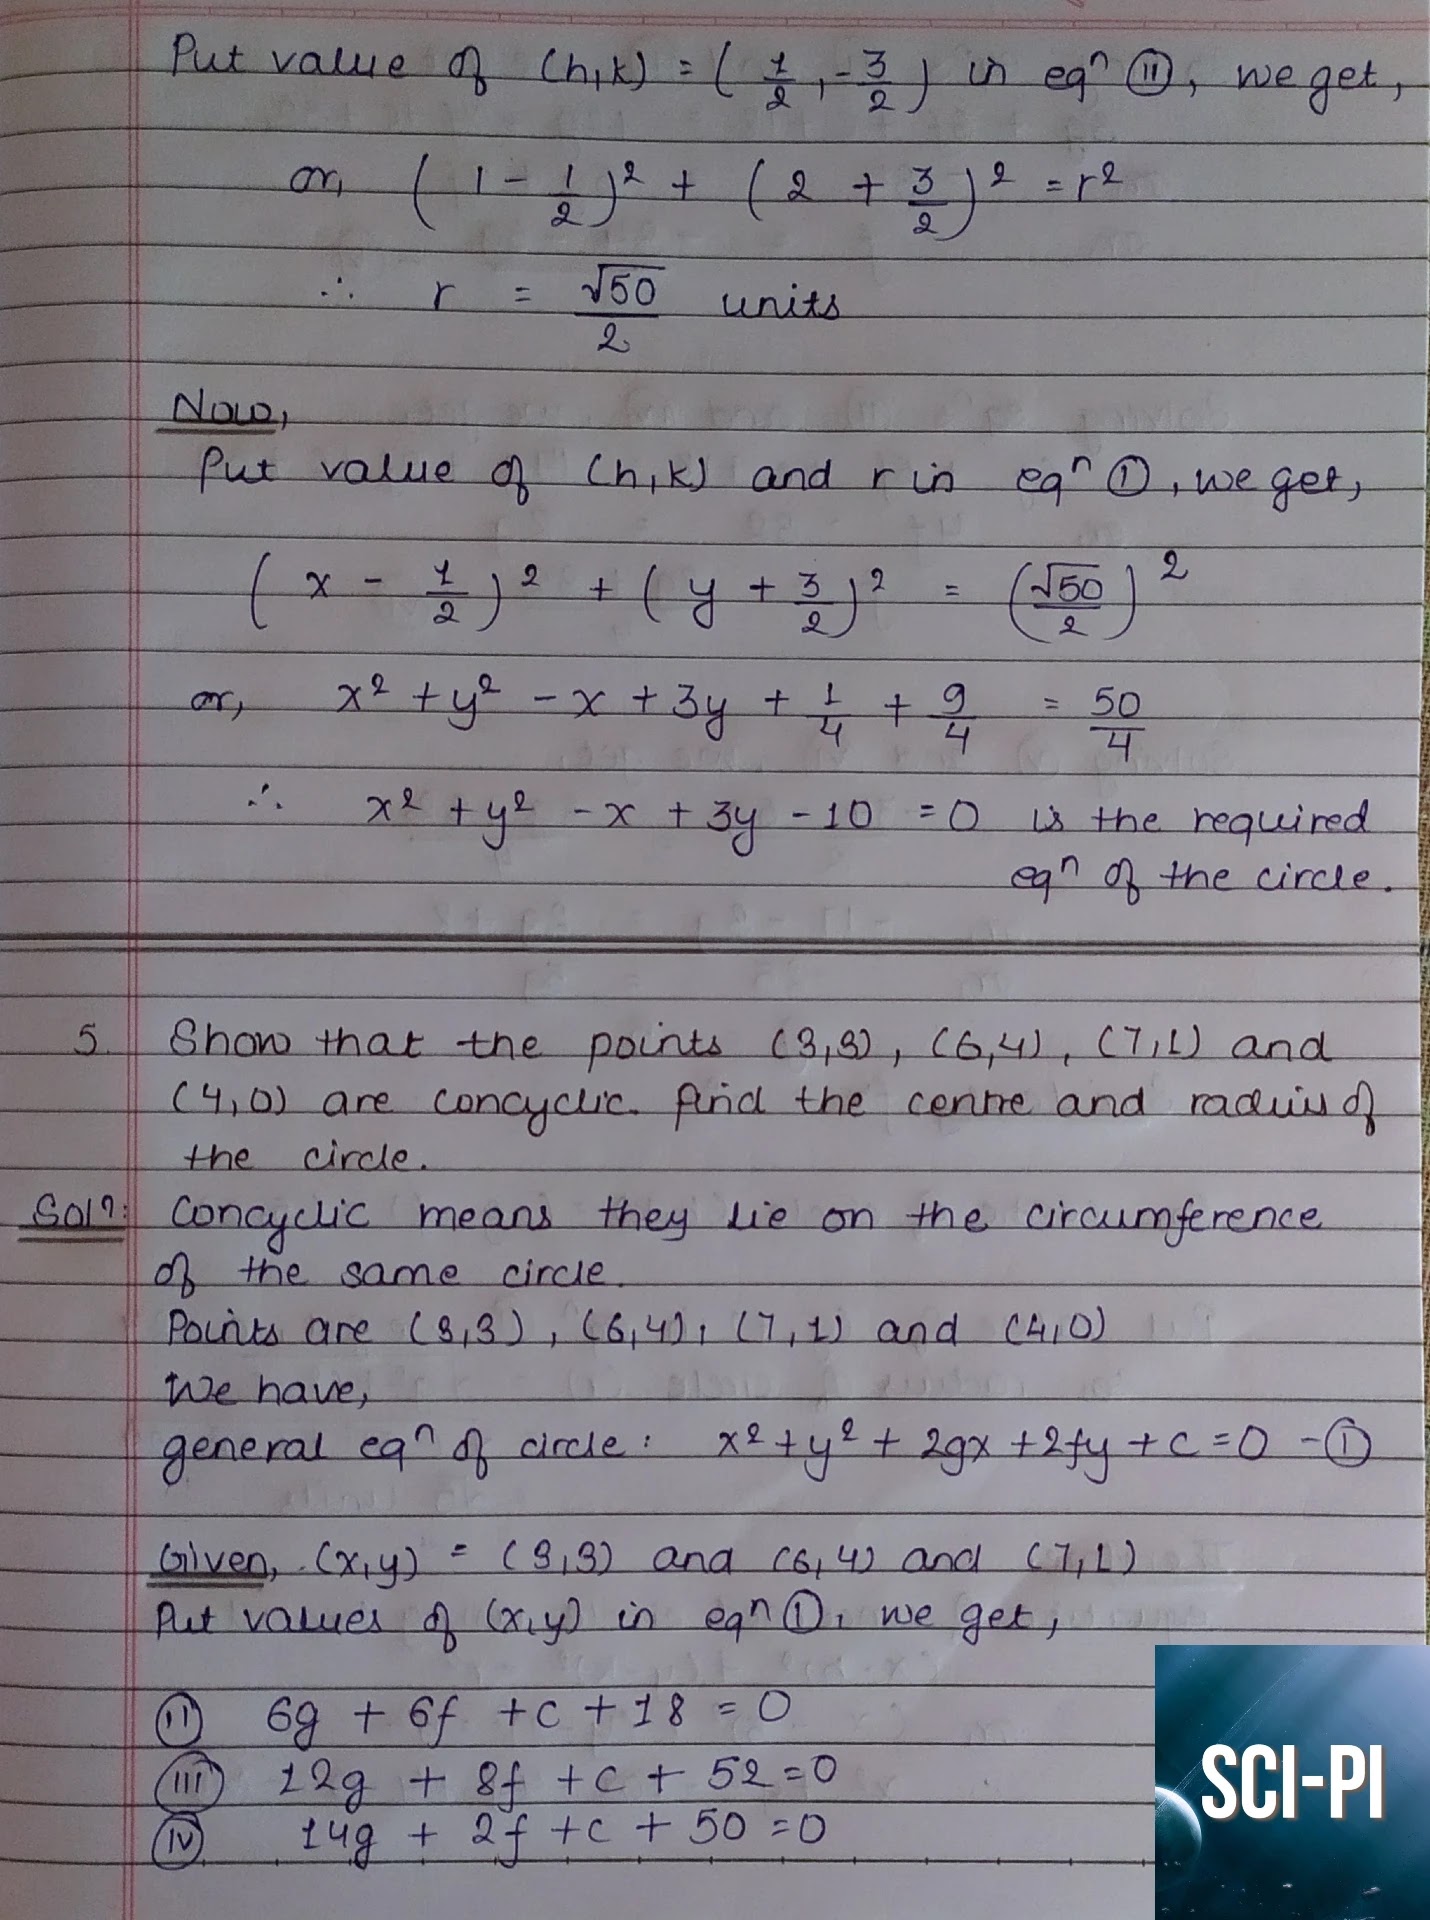 Put value of (h,k) = (1/2, -3/2) in eqⁿ (II), we get,
or, (1 - 1/2)² + (2 + 3/2)² = r²
∴ r = √50/2 units
Now,
Put value of (h,k) and r in eqⁿ (I), we get,
(x - 1/2)² + (y + 3/2)² = (√50/2)²
or, x² + y² - x + 3y + 1/4 + 9/4 = 50/4
∴ x² + y² - x + 3y - 10 = 0 is the required
eqⁿ of the circle.
5. Show that the points (3,3), (6,4), (7,1) and
(4,0) are concyclic. Find the centre and radius of
the circle.
Solⁿ: Concyclic means they lie on the circumference
of the same circle.
Points are (3,3), (6,4), (7,1) and (4,0)
We have,
general eqⁿ of circle: x² + y² + 2gx + 2fy + c = 0 - (I)
Given, (x,y) = (3,3) and (6,4) and (7,1)
Put values of (x,y) in eqⁿ (I), we get,
(II) 6g + 6f + c + 18 = 0
(III) 12g + 8f + c + 52 = 0
(IV) 14g + 2f + c + 50 = 0
SCI-PI